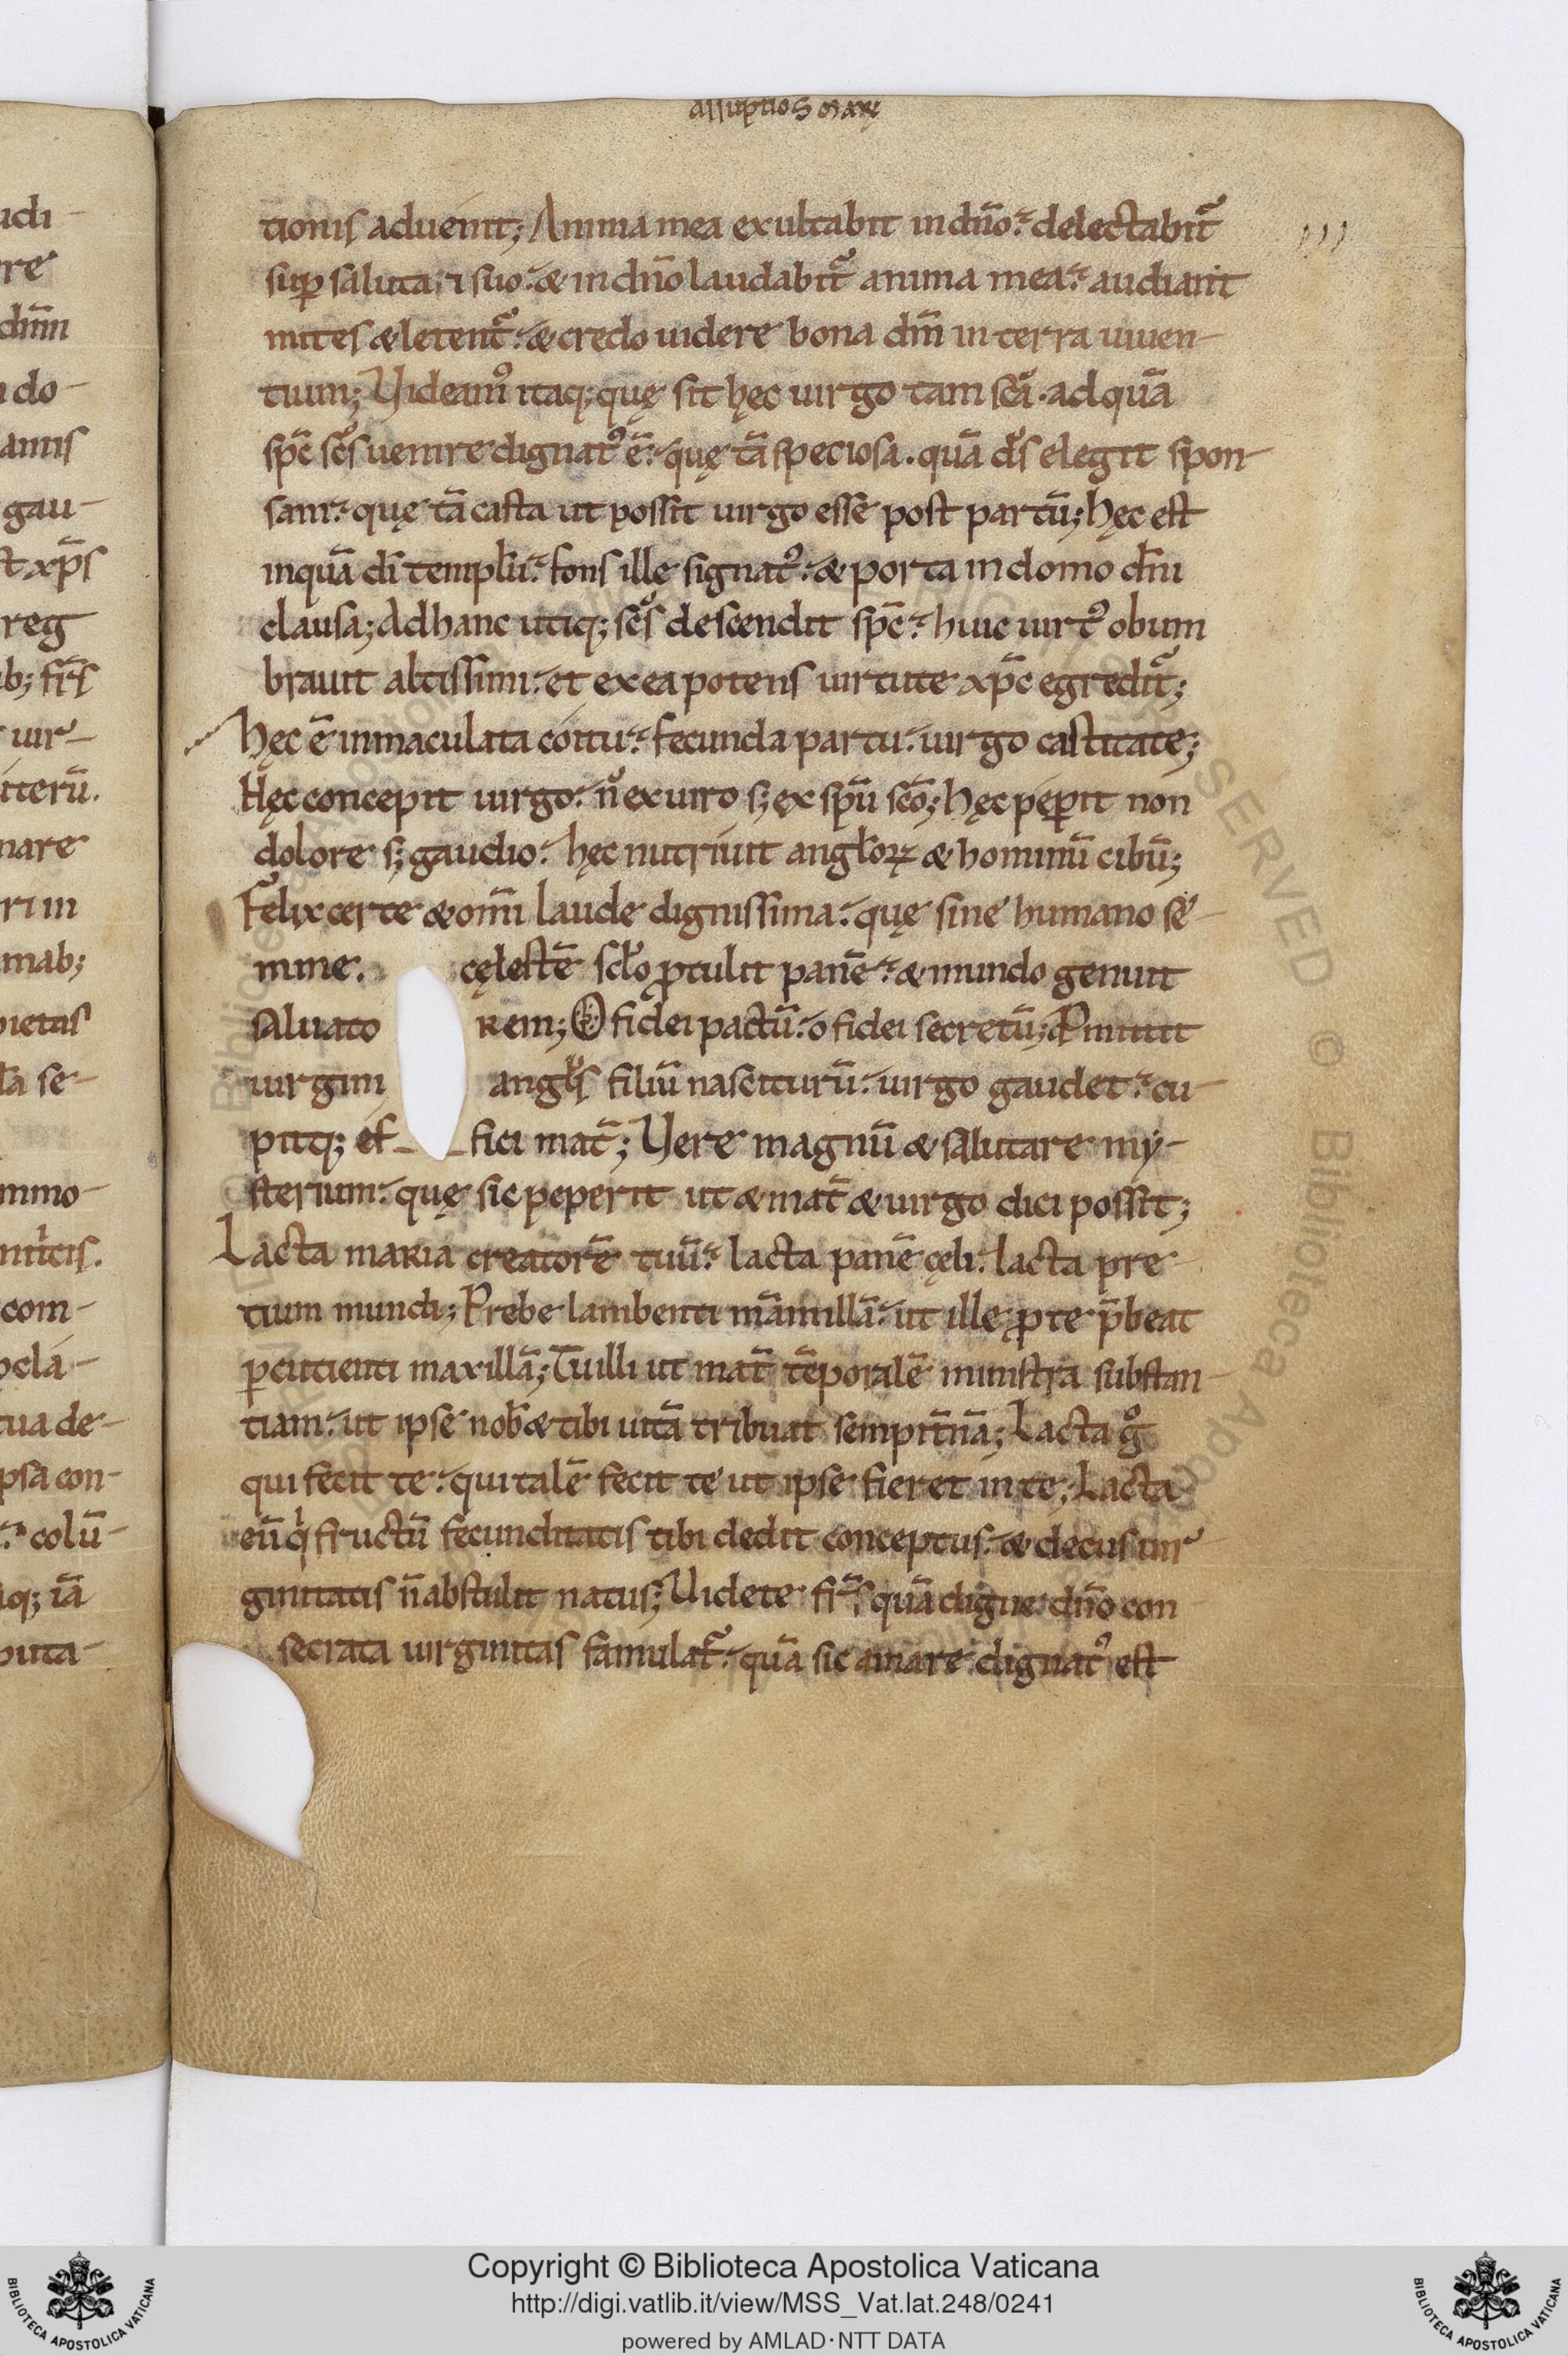 assūptio S marię
tionis aduenit; Anima mea exultabit in dn̄o. delectabit᷑
suꝑ saluta i suo. & in dn̄o laudabit᷑ anima mea. audiant
mites & letent᷑. & credo uidere bona dn̄i in terra uiuen-
tium; Uideamꝰ itaq; quę sit hęc uirgo tam sc̄a. ad quā
sp̄c sc̄s uenire dignatꝰ ē. quę tā speciosa. quā ds̄ elegit spon-
sam. quę tā casta ut possit uirgo esse post partū; hęc est
inquā di templū. fons ille signatꝰ. & porta in domo dn̄i
clausa; Ad hanc utiq; sc̄s descendit sp̄c. huic uirtꝰ obum
brauit altissimi. et ex ea potens uirtute xp̄c egredit᷑;
hęc ē inmaculata coitu. fecunda partu. uirgo castitate;
Hęc concepit uirgo. n̄ ex uiro s; ex sp̄u sc̄o; hęc peꝑit non
dolore s; gaudio. hęc nutriuit angloꝝ & hominū cibū;
Felix certe & om̄i laude dignissima. quę sine humano se-
mine. cęlestē sclo ꝓtulit panē. & mundo genuit
saluato rem; O fidei pactū. o fidei secretū; Pmittit
uirgini angls filiū nasciturū. uirgo gaudet. cu-
pitq; ef- -fici mat̄; Uere magnū & salutare my-
sterium. quę sic peperit ut & mat̄ & uirgo dici possit;
Lacta maria creatorē tuū. lacta panē cęli. lacta pre-
tium mundi; Prebe lambenti māmillā. ut ille ꝓ te p̄beat
ꝑcutienti maxillā; Tu illi ut mat̄ tēporalē ministra substan-
tiam. ut ipse nob & tibi uitā tribuat sempit̄nā; Lacta gͦ
qui fecit te. qui talē fecit te ut ipse fieret in te; Lacta
eū qͥ fructū fecunditatis tibi dedit conceptus. & decus uir-
ginitatis n̄ abstulit natus; Uidete fr̄s quā digne dn̄o con-
secrata uirginitas famulat᷑. quā sic amare dignatꝰ est
udi-
re
dnm
do-
amis
gau-
t xp̄s
reg
b; fr̄s
uir-
iterū.
nare
ri in
mab;
pietas
la se-
mmo-
com-
tua de-
psa con-
colū-
q; iā
puta-
Copyright © Biblioteca Apostolica Vaticana
http://digi.vatlib.it/view/MSS_Vat.lat.248/0241
powered by AMLAD·NTT DATA
BIBLIOTECA APOSTOLICA VATICANA
BIBLIOTECA APOSTOLICA VATICANA